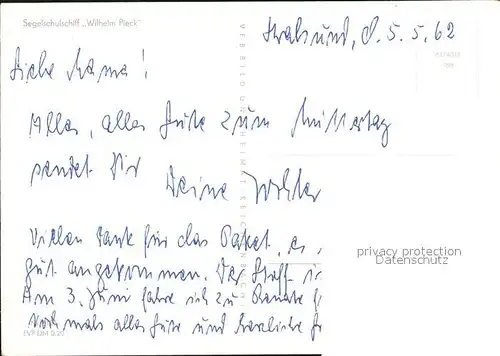 Segelschulschiff „Wilhelm Pieck"
Stralsund, d. 5.5.62
Liebe Mama!
Alles, alles Gute zum Muttertag
sendet Dir
Deine Tochter
Vielen Dank für das Paket, es
gut angekommen. Der Stoff
Am 3. Juni fahre ich zu Renate
Nochmals alles Gute und herzliche
VEB BILD UND HEIMAT REICHENBACH
privacy protection
Datenschutz